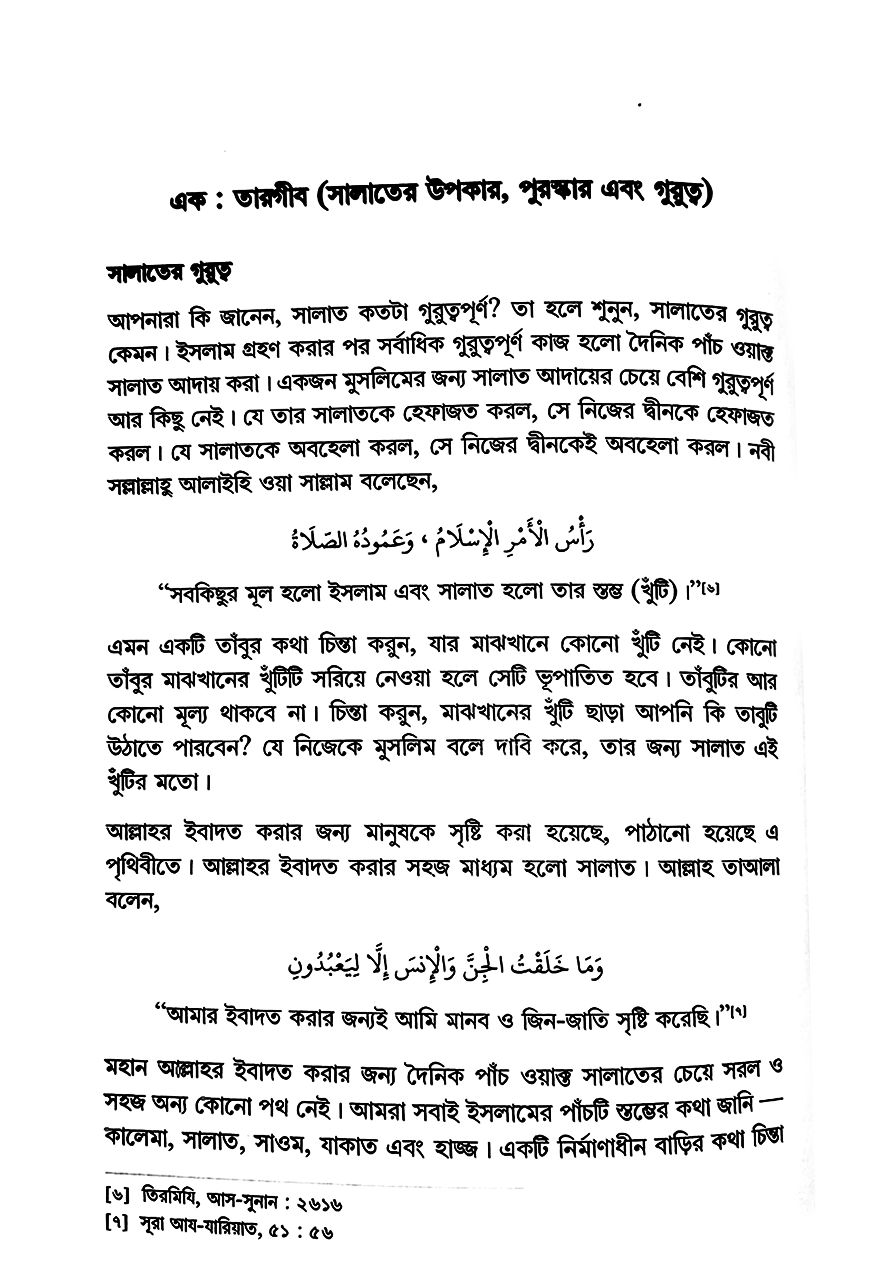 এক : তারগীব (সালাতের উপকার, পুরস্কার এবং গুরুত্ব)
সালাতের গুরুত্ব
আপনারা কি জানেন, সালাত কতটা গুরুত্বপূর্ণ? তা হলে শুনুন, সালাতের গুরুত্ব
কেমন। ইসলাম গ্রহণ করার পর সর্বাধিক গুরুত্বপূর্ণ কাজ হলো দৈনিক পাঁচ ওয়াক্ত
সালাত আদায় করা। একজন মুসলিমের জন্য সালাত আদায়ের চেয়ে বেশি গুরুত্বপূর্ণ
আর কিছু নেই। যে তার সালাতকে হেফাজত করল, সে নিজের দ্বীনকে হেফাজত
করল। যে সালাতকে অবহেলা করল, সে নিজের দ্বীনকেই অবহেলা করল। নবী
সল্লাল্লাহু আলাইহি ওয়া সাল্লাম বলেছেন,
رَأْسُ الْأَمْرِ الْإِسْلَامُ ، وَعَمُودُهُ الصَّلَاةُ
“সবকিছুর মূল হলো ইসলাম এবং সালাত হলো তার স্তম্ভ (খুঁটি)।”[৬]
এমন একটি তাঁবুর কথা চিন্তা করুন, যার মাঝখানে কোনো খুঁটি নেই। কোনো
তাঁবুর মাঝখানের খুঁটিটি সরিয়ে নেওয়া হলে সেটি ভূপাতিত হবে। তাঁবুটির আর
কোনো মূল্য থাকবে না। চিন্তা করুন, মাঝখানের খুঁটি ছাড়া আপনি কি তাবুটি
উঠাতে পারবেন? যে নিজেকে মুসলিম বলে দাবি করে, তার জন্য সালাত এই
খুঁটির মতো।
আল্লাহর ইবাদত করার জন্য মানুষকে সৃষ্টি করা হয়েছে, পাঠানো হয়েছে এ
পৃথিবীতে। আল্লাহর ইবাদত করার সহজ মাধ্যম হলো সালাত। আল্লাহ তাআলা
বলেন,
وَمَا خَلَقْتُ الْجِنَّ وَالْإِنسَ إِلَّا لِيَعْبُدُونِ
“আমার ইবাদত করার জন্যই আমি মানব ও জিন-জাতি সৃষ্টি করেছি।”[৭]
মহান আল্লাহর ইবাদত করার জন্য দৈনিক পাঁচ ওয়াক্ত সালাতের চেয়ে সরল ও
সহজ অন্য কোনো পথ নেই। আমরা সবাই ইসলামের পাঁচটি স্তম্ভের কথা জানি —
কালেমা, সালাত, সাওম, যাকাত এবং হাজ্জ। একটি নির্মাণাধীন বাড়ির কথা চিন্তা
[৬] তিরমিযি, আস-সুনান : ২৬১৬
[৭] সূরা আয-যারিয়াত, ৫১ : ৫৬